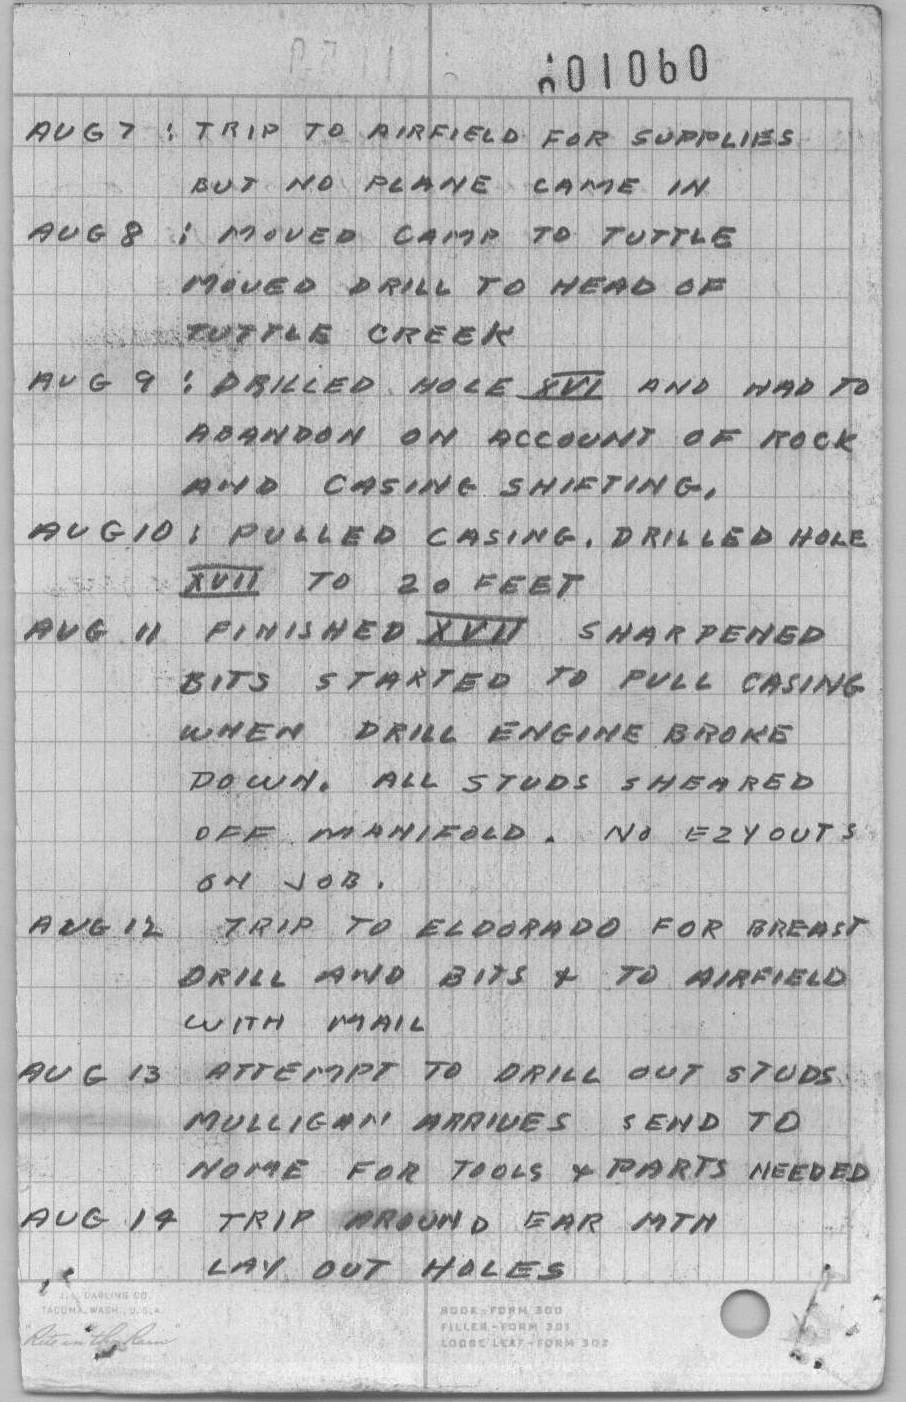 001060
AUG 7 : TRIP TO AIRFIELD FOR SUPPLIES
BUT NO PLANE CAME IN
AUG 8 : MOVED CAMP TO TUTTLE
MOVED DRILL TO HEAD OF
TUTTLE CREEK
AUG 9 : DRILLED HOLE XVI AND HAD TO
ABANDON ON ACCOUNT OF ROCK
AND CASING SHIFTING.
AUG 10 : PULLED CASING. DRILLED HOLE
XVII TO 20 FEET
AUG 11 FINISHED XVII SHARPENED
BITS STARTED TO PULL CASING
WHEN DRILL ENGINE BROKE
DOWN. ALL STUDS SHEARED
OFF MANIFOLD. NO EZYOUTS
ON JOB.
AUG 12 TRIP TO ELDORADO FOR BREAST
DRILL AND BITS & TO AIRFIELD
WITH MAIL
AUG 13 ATTEMPT TO DRILL OUT STUDS
MULLIGAN ARRIVES SEND TO
NOME FOR TOOLS & PARTS NEEDED
AUG 14 TRIP AROUND EAR MTN
LAY OUT HOLES
J. L. DARLING CO.
TACOMA, WASH., U.S.A.
"Rite in the Rain"
BOOK-FORM 300
FILLER-FORM 301
LOOSE LEAF-FORM 302